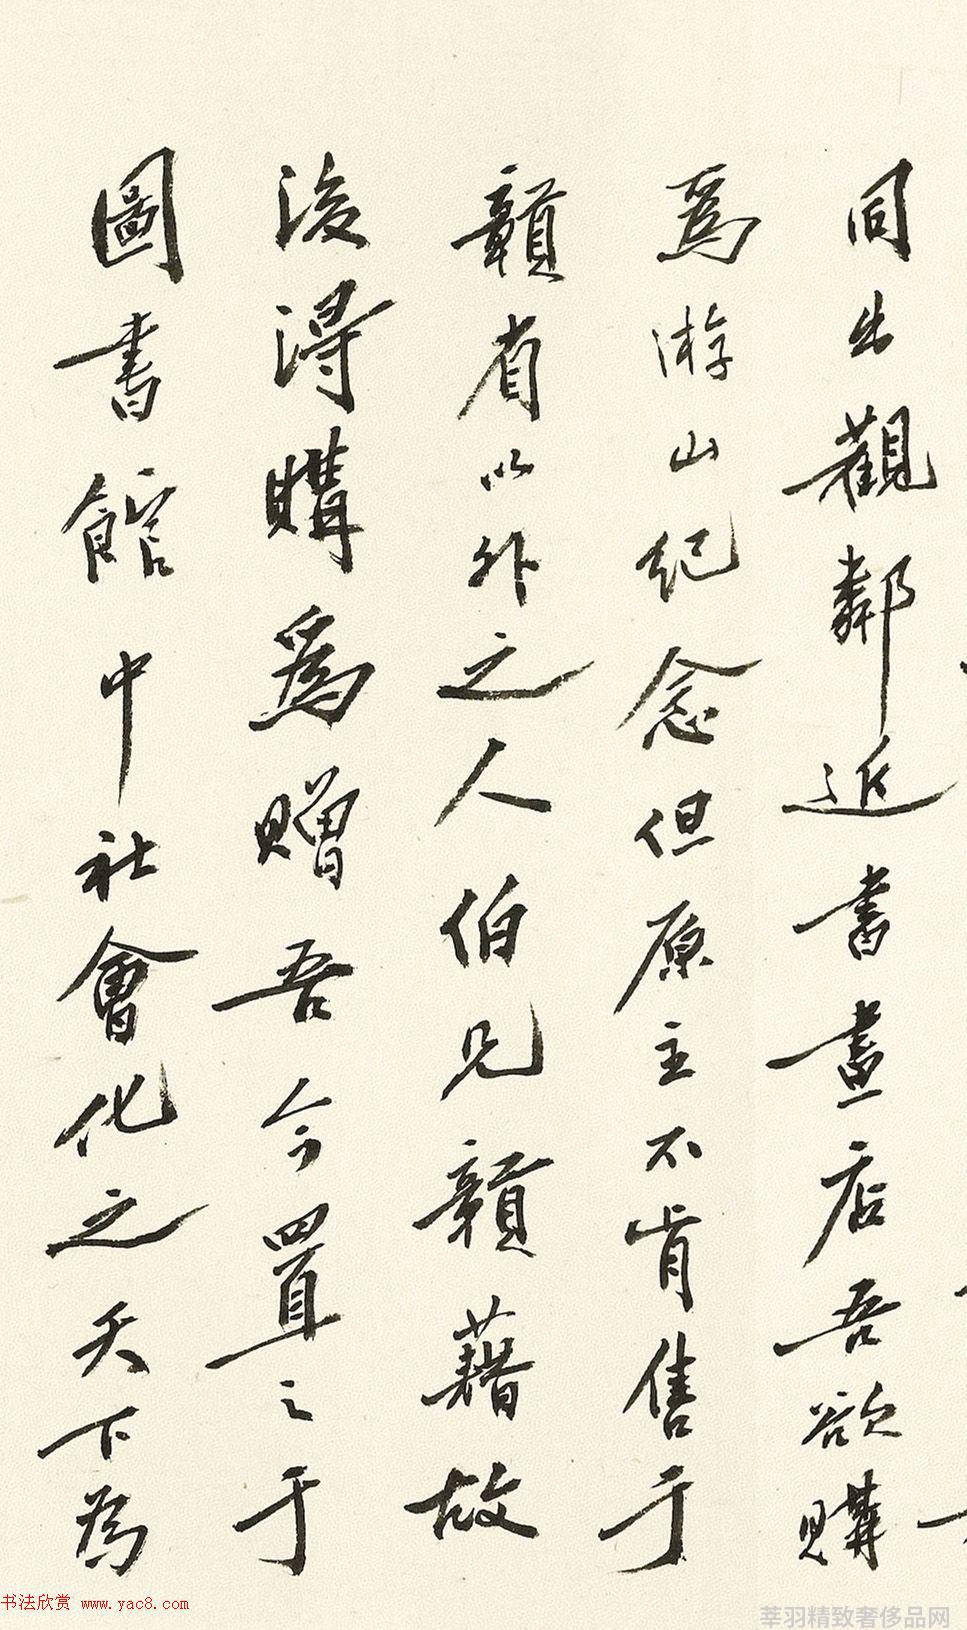 同出觀鄰近書畫店吾欲購
為游山紀念但原主不肯售于
贛省以外之人伯兄贛藉故
後得購為贈吾今置之于
圖書館中社會化之天下為
书法欣赏 www.yac8.com
莘羽精致奢侈品网